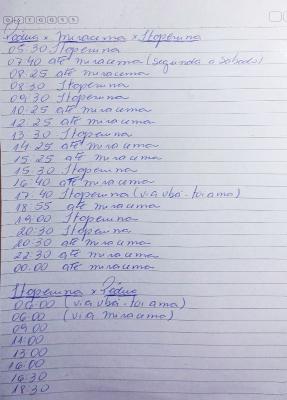 Pádua x Miracema x Itaperuna
05:30 Itaperuna
07:40 até miracema (segunda a Sábado)
08:25 até miracema
08:30 Itaperuna
09:30 Itaperuna
10:25 até miracema
12:25 até miracema
13:30 Itaperuna
14:25 até miracema
15:25 até miracema
15:30 Itaperuna
16:40 até miracema
17:40 Itaperuna (via
18:55 até miracema
19:00 Itaperuna
20:30 Itaperuna
20:30 até miracema
22:30 até miracema
00:00 até miracema
Itaperuna x Pádua
06:00 (via
06:00 (via miracema)
09:00
11:00
13:00
16:00
16:30
18:30